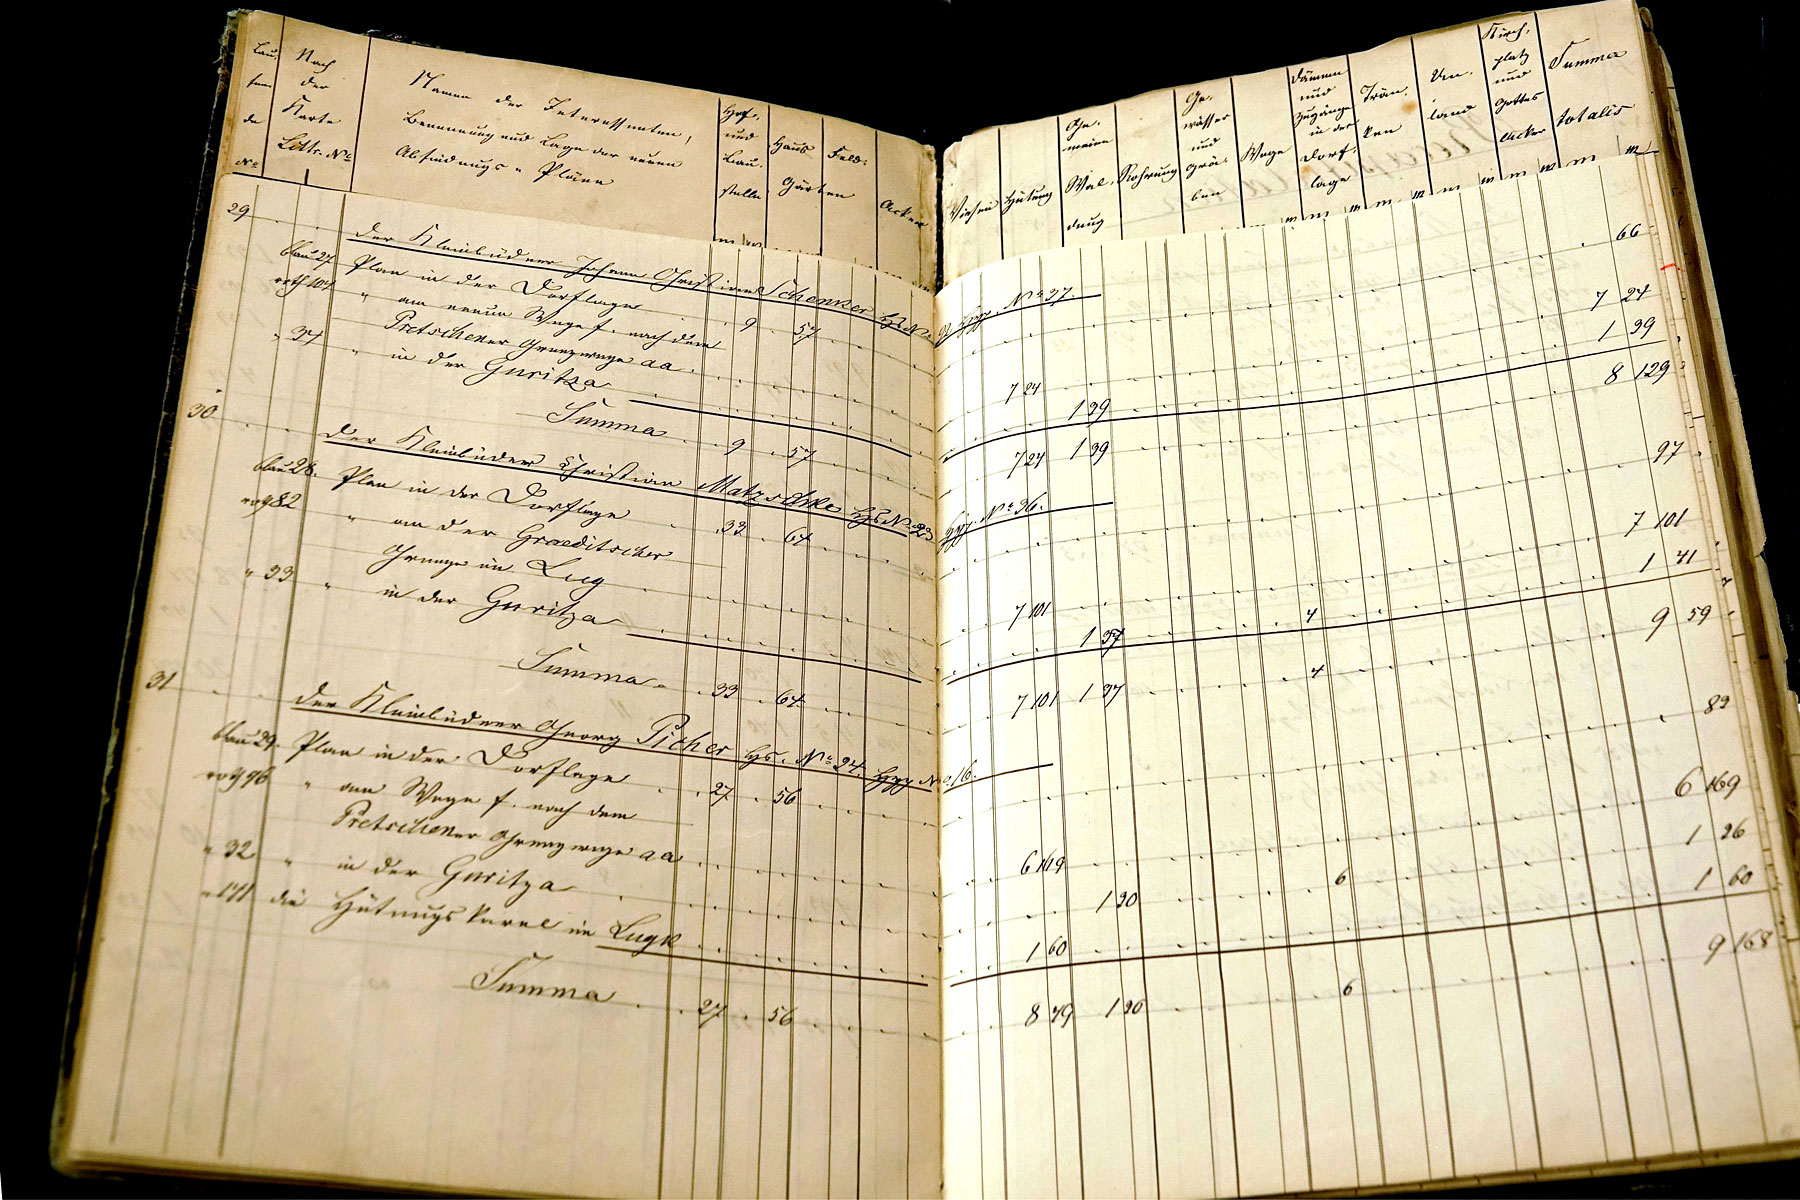 Lau-
fen-
de
No
Nach
der
Karte
Littr. No
Namen der Interessenten,
Benennung und Lage der neuen
Abfindungs-Pläne
Hof-
und
Bau-
stelle
Haus
Gärten
Feld-
Acker
Wiesen
Hütung
Ge-
meine
Wal-
dung
Rohrung
Ge-
wässer
und
Grä-
ben
Wege
Dämme
und
Zugänge
in der
Dorf-
lage
Trän-
ken
Un-
land
Kirch-
platz
und
Gottes
Acker
Summa
totalis
29 Der Kleinbüdner Johann Christian Schenker Hs No Hyp. No 37.
blau 27 Plan in der Dorflage 9 57 66
roth 104 " am neuen Wege f. nach dem
Pretschener Grenzwege aa 7 24 7 24
" 34 " in der Guritza 1 39 1 39
Summa 9 57 7 24 1 39 8 129
30 Der Kleinbüdner Christian Matzschke Hs No 23 Hyp. No 36.
blau 28. Plan in der Dorflage 33 64 97
roth 82 " an der Graeditscher
Grenze im Lug 7 101 7 101
" 33 " in der Guritza 1 37 4 1 41
Summa 33 64 7 101 1 37 4 9 59
31 Der Kleinbüdner Georg Picher Hs. No 24. Hyp No 16.
blau 29. Plan in der Dorflage 27 56 83
roth 96 " am Wege f. nach dem
Pretschener Grenzwege aa 6 169 6 169
" 32 " in der Guritza 1 30 6 1 36
" 141 die Hütungskavel im Lugk 1 60 1 60
Summa 27 56 8 49 1 30 6 9 168